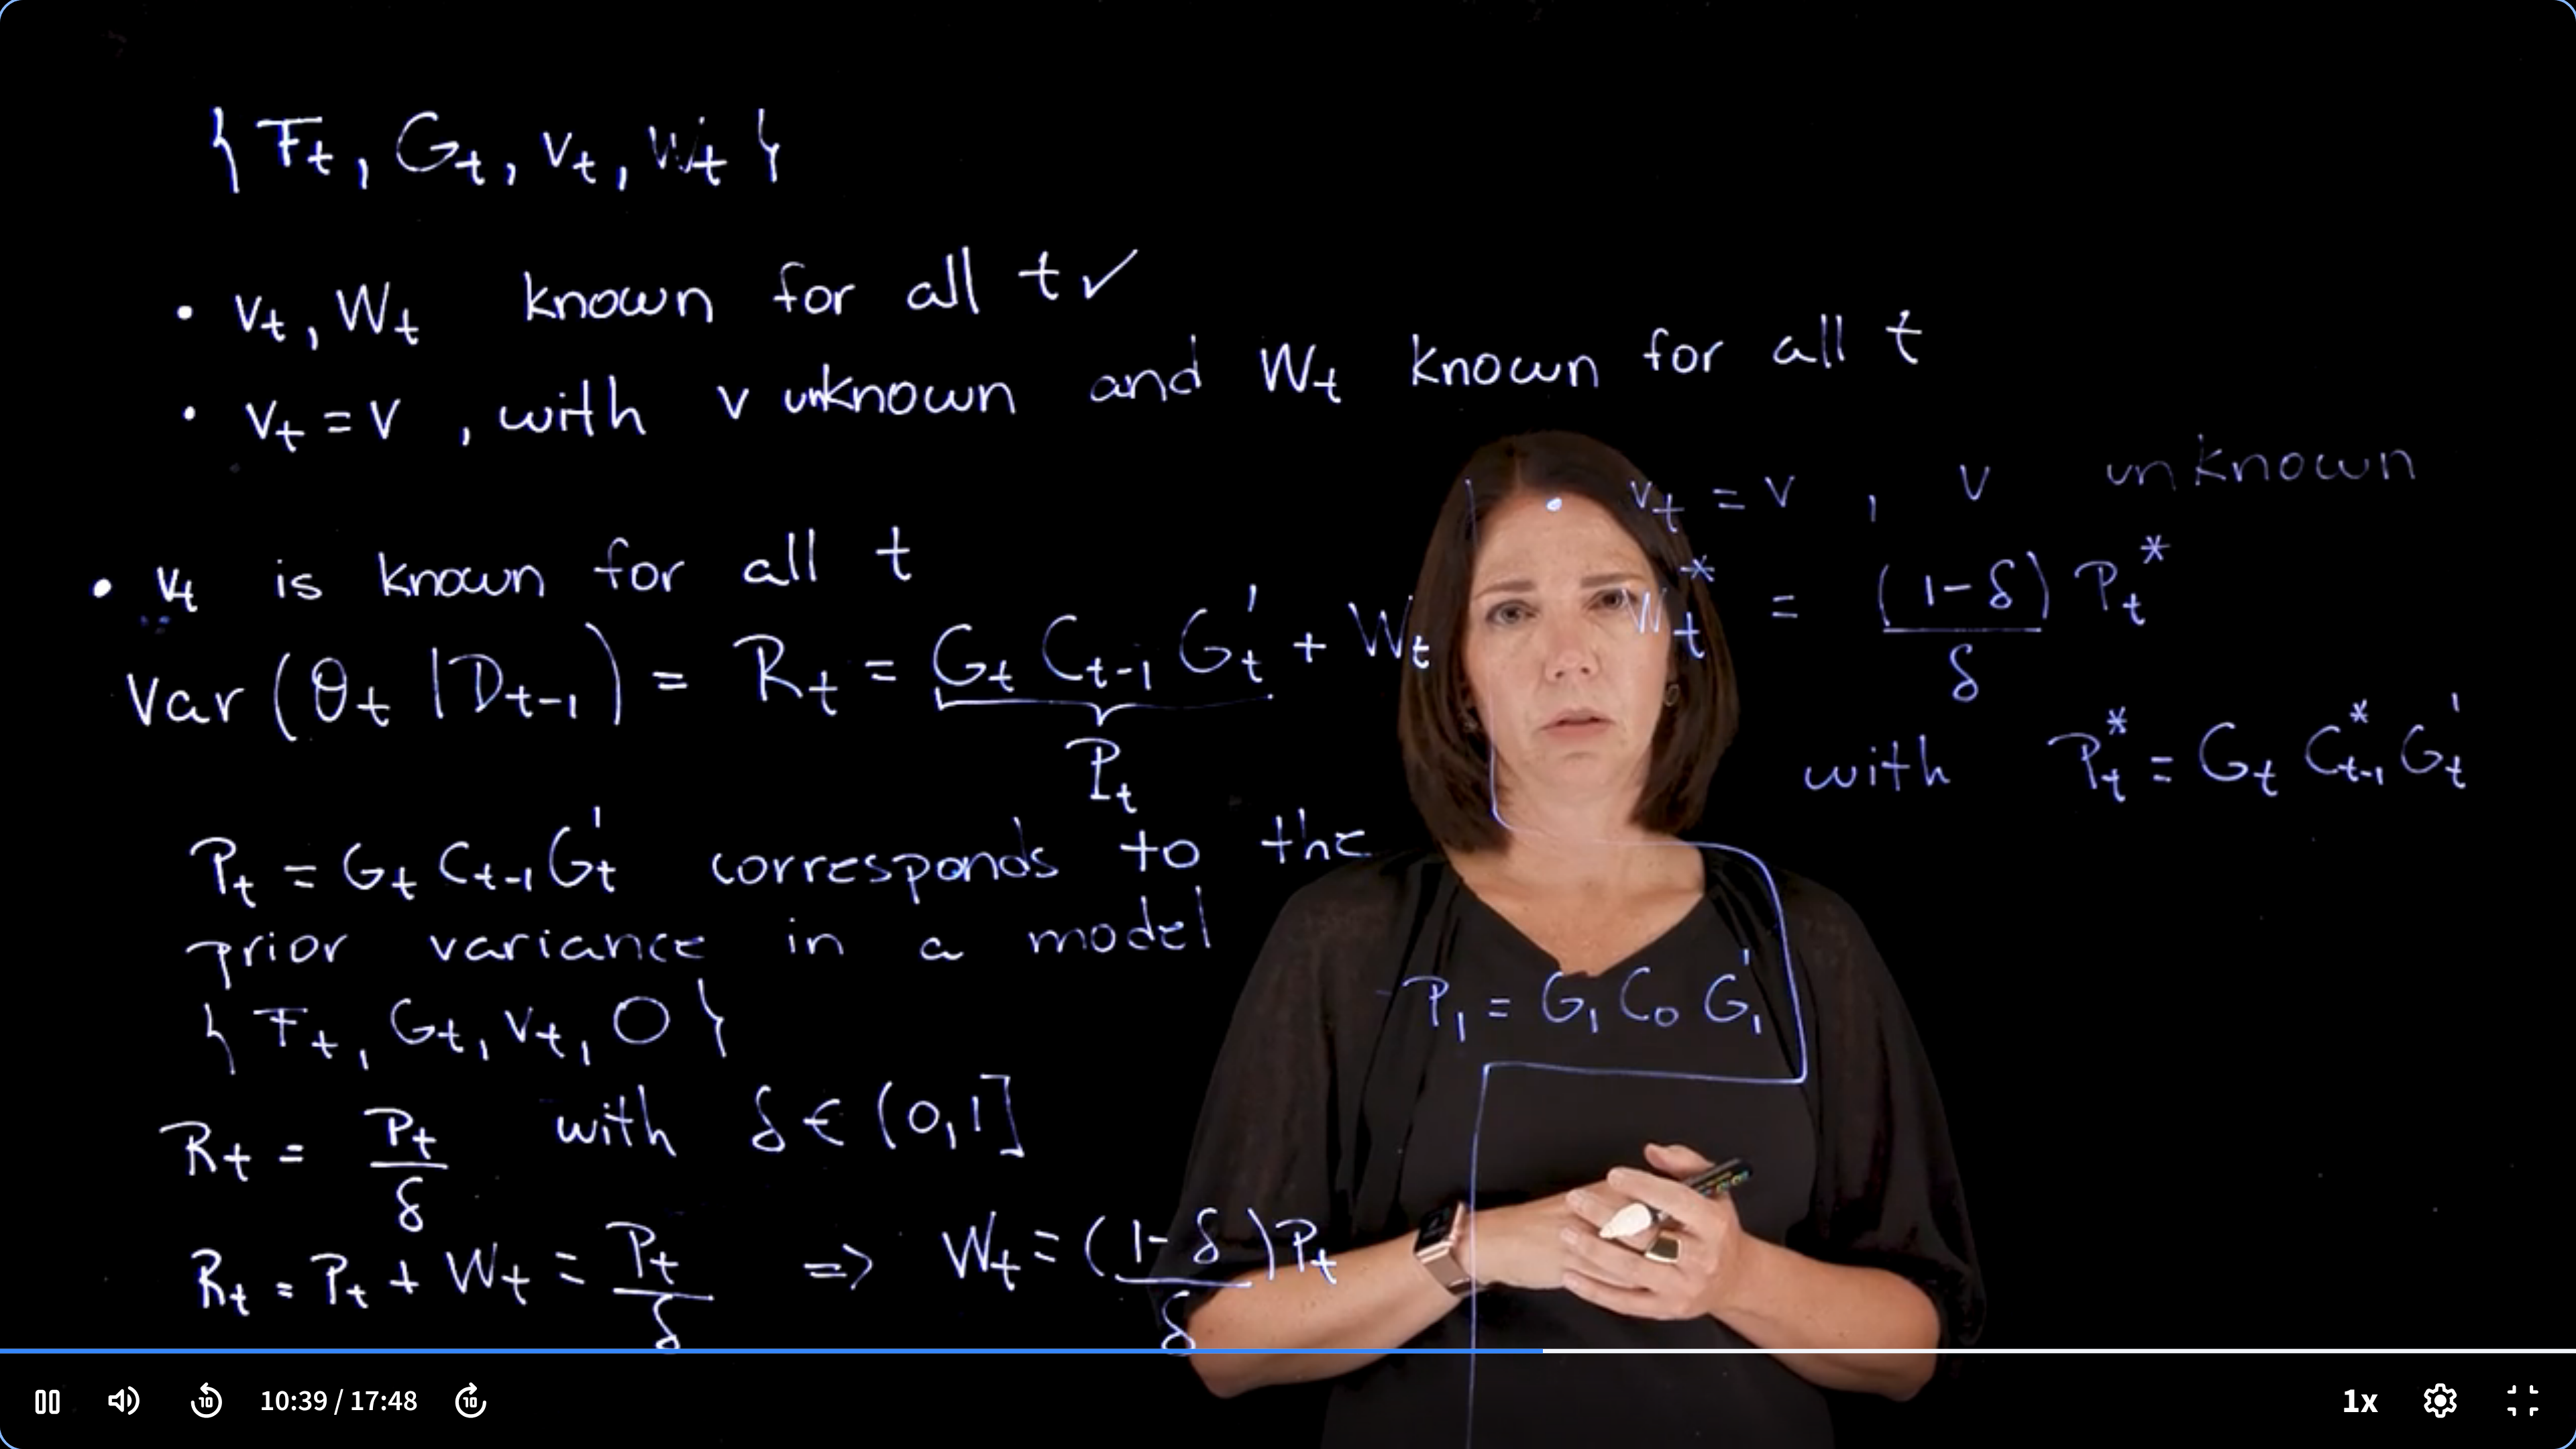 { Ft, Gt, vt, Wt }
• vt, Wt known for all t ✓
• vt = v, with v unknown and Wt known for all t
• vt is known for all t
Var(θt | Dt-1) = Rt = Gt Ct-1 G't + Wt
Pt
Pt = Gt Ct-1 G't corresponds to the
prior variance in a model
{ Ft, Gt, vt, 0 }
Rt = Pt/δ with δ ∈ (0,1]
Rt = Pt + Wt = Pt/δ => Wt = (1-δ)/δ Pt
P1 = G1 C0 G'1
• vt = v, v unknown
Wt* = (1-δ)/δ Pt*
with Pt* = Gt C*t-1 G't
10:39 / 17:48
10
10
1x